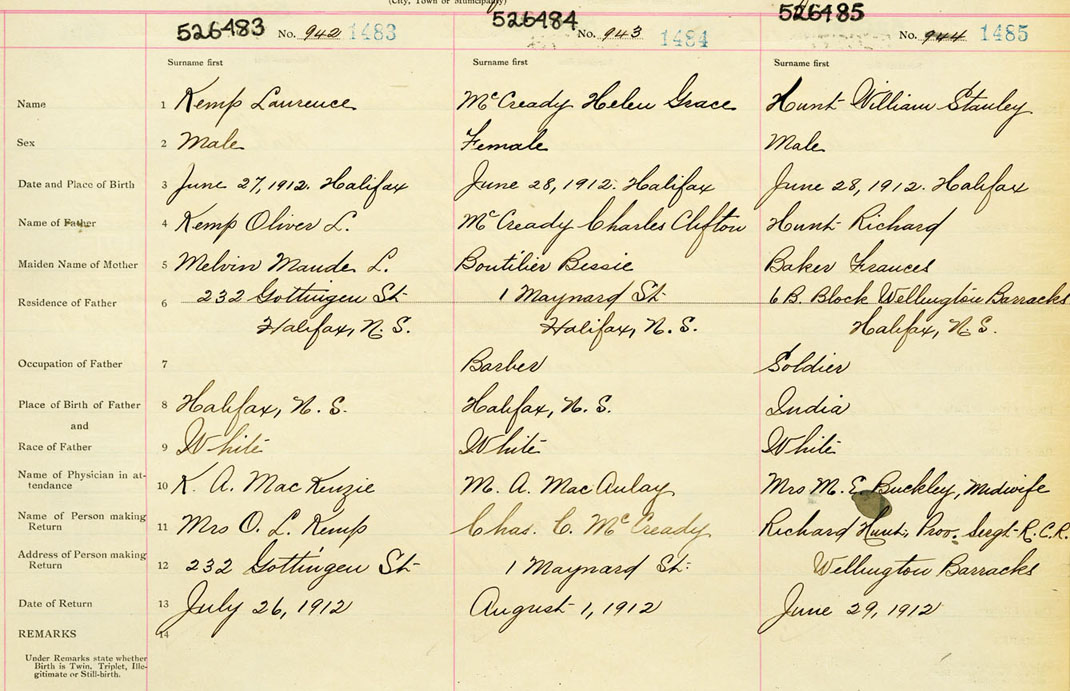 (City, Town or Municipality)
526483 No. 942 1483
526484 No. 943 1484
526485 No. 944 1485
Surname first Surname first Surname first
Name 1 Kemp Laurence McCready Helen Grace Hunt William Stanley
Sex 2 Male Female Male
Date and Place of Birth 3 June 27, 1912. Halifax June 28, 1912. Halifax June 28, 1912. Halifax
Name of Father 4 Kemp Oliver L. McCready Charles Clifton Hunt Richard
Maiden Name of Mother 5 Melvin Maude L. Boutilier Bessie Baker Frances
Residence of Father 6 232 Gottingen St 1 Maynard St 6 B. Block Wellington Barracks
Halifax, N. S. Halifax, N. S. Halifax, N. S.
Occupation of Father 7 Barber Soldier
Place of Birth of Father 8 Halifax, N. S. Halifax, N. S. India
and
Race of Father 9 White White White
Name of Physician in at-
tendance 10 K. A. MacKenzie M. A. MacAulay Mrs M. E. Buckley, Midwife
Name of Person making
Return 11 Mrs O. L. Kemp Chas. C. McCready Richard Hunt, Prov. Sergt. R. C. R.
Address of Person making
Return 12 232 Gottingen St 1 Maynard St. Wellington Barracks
Date of Return 13 July 26, 1912 August 1, 1912 June 29, 1912
REMARKS 14
Under Remarks state whether
Birth is Twin, Triplet, Ille-
gitimate or Still-birth.